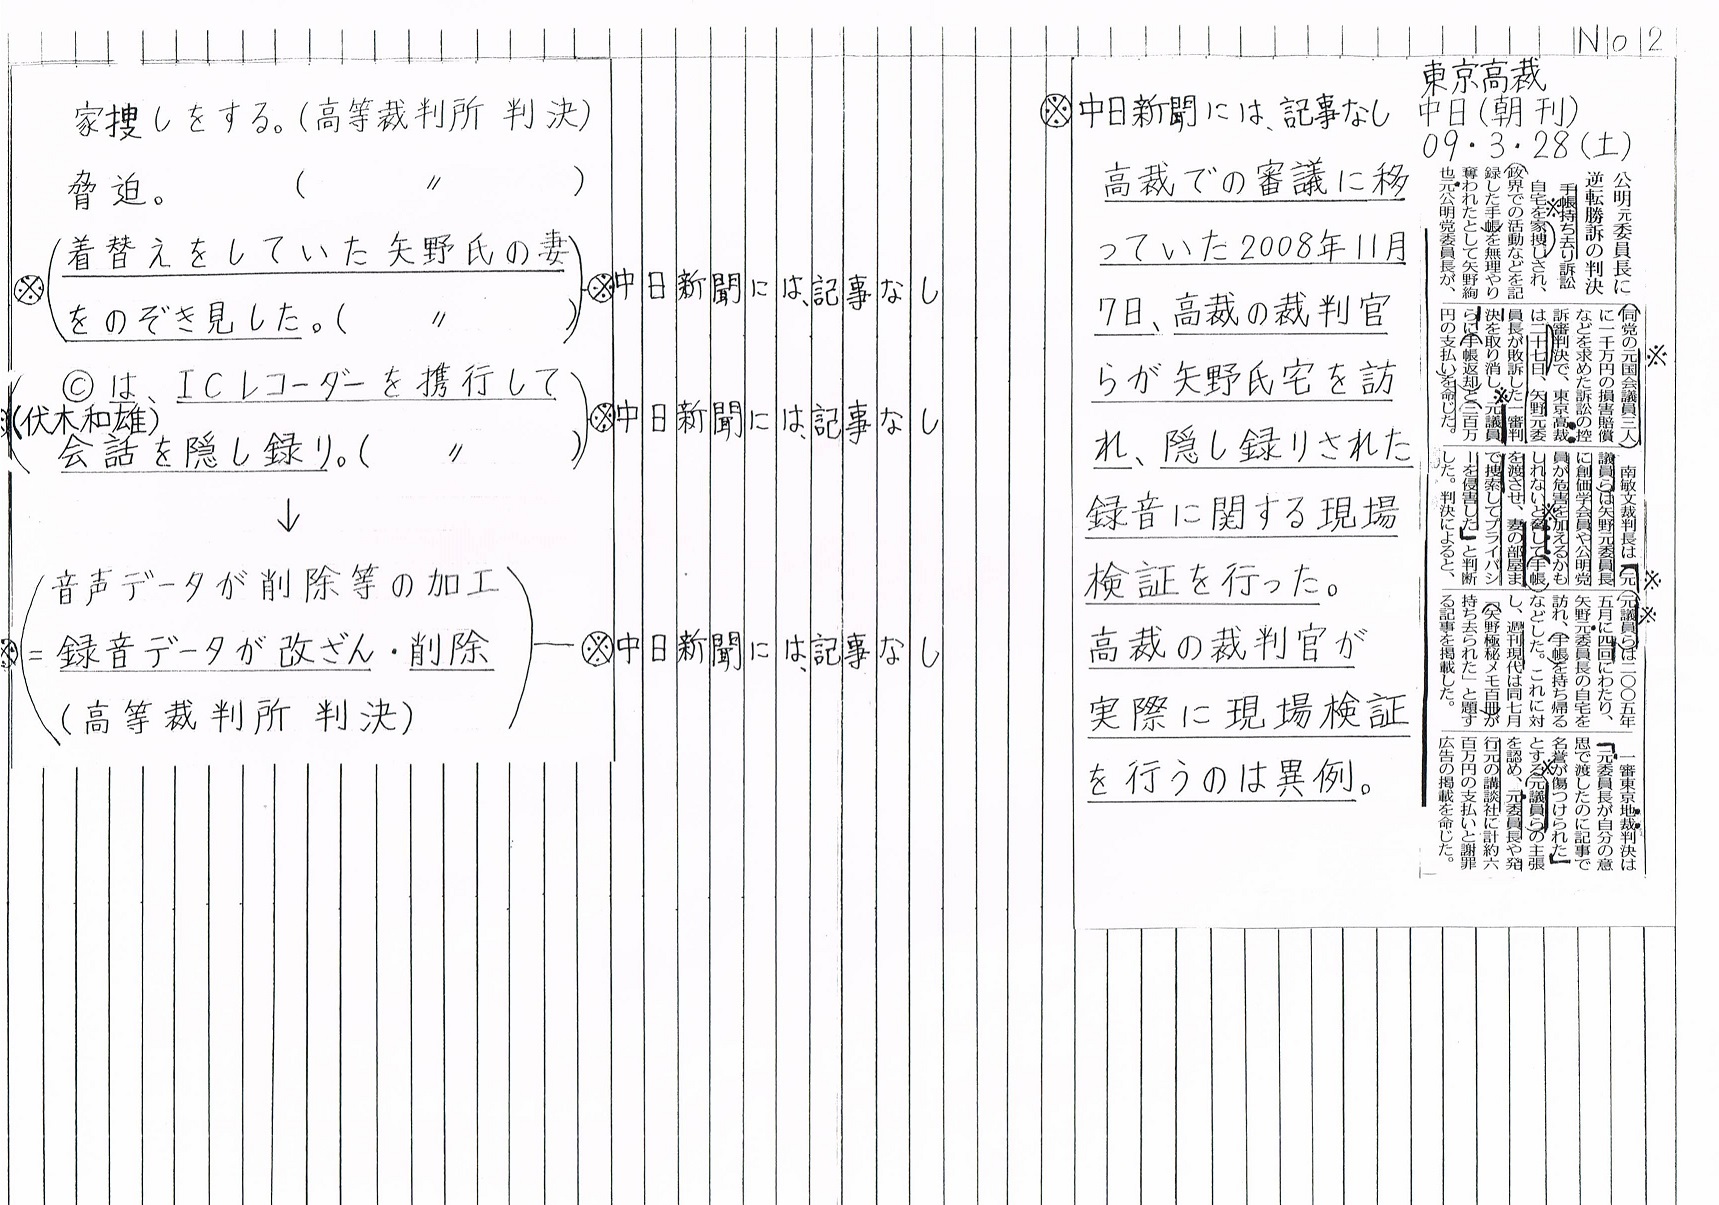 No 2
東京高裁
中日(朝刊)
09・3・28(土)
公明元委員長に
逆転勝訴の判決
手帳持ち去り訴訟
自宅を家捜しされ、
政界での活動などを記
録した手帳を無理やり
奪われたとして矢野絢
也元公明党委員長が、
同党の元国会議員三人
に一千万円の損害賠償
などを求めた訴訟の控
訴審判決で、東京高裁
は二十七日、矢野元委
員長が敗訴した一審判
決を取り消し、元議員
らに手帳返却と三百万
円の支払いを命じた。
南敏文裁判長は「元
議員らは矢野元委員長
に創価学会員や公明党
員が危害を加えるかも
しれないと脅して手帳
を渡させ、妻の部屋ま
で捜索してプライバシ
ーを侵害した」と判断
した。判決によると、
元議員らは二〇〇五年
五月に四回にわたり、
矢野元委員長の自宅を
訪れ、手帳を持ち帰る
などした。これに対
し、週刊現代は同七月
「矢野極秘メモ百冊が
持ち去られた」と題す
る記事を掲載した。
一審東京地裁判決は
「元委員長が自分の意
思で渡したのに記事で
名誉が傷つけられた」
とする元議員らの主張
を認め、元委員長や発
行元の講談社に計約六
百万円の支払いと謝罪
広告の掲載を命じた。
※中日新聞には、記事なし
高裁での審議に移
っていた2008年11月
7日、高裁の裁判官
らが矢野氏宅を訪
れ、隠し録りされた
録音に関する現場
検証を行った。
高裁の裁判官が
実際に現場検証
を行うのは異例。
家捜しをする。(高等裁判所 判決)
脅迫。 ( 〃 )
※(着替えをしていた矢野氏の妻
をのぞき見した。( 〃 ))※中日新聞には、記事なし
(Ⓒは、ICレコーダーを携行して
※(伏木和雄)
会話を隠し録り。( 〃 ))※中日新聞には、記事なし
↓
(音声データが削除等の加工
※ =録音データが改ざん・削除
(高等裁判所 判決))―※中日新聞には、記事なし